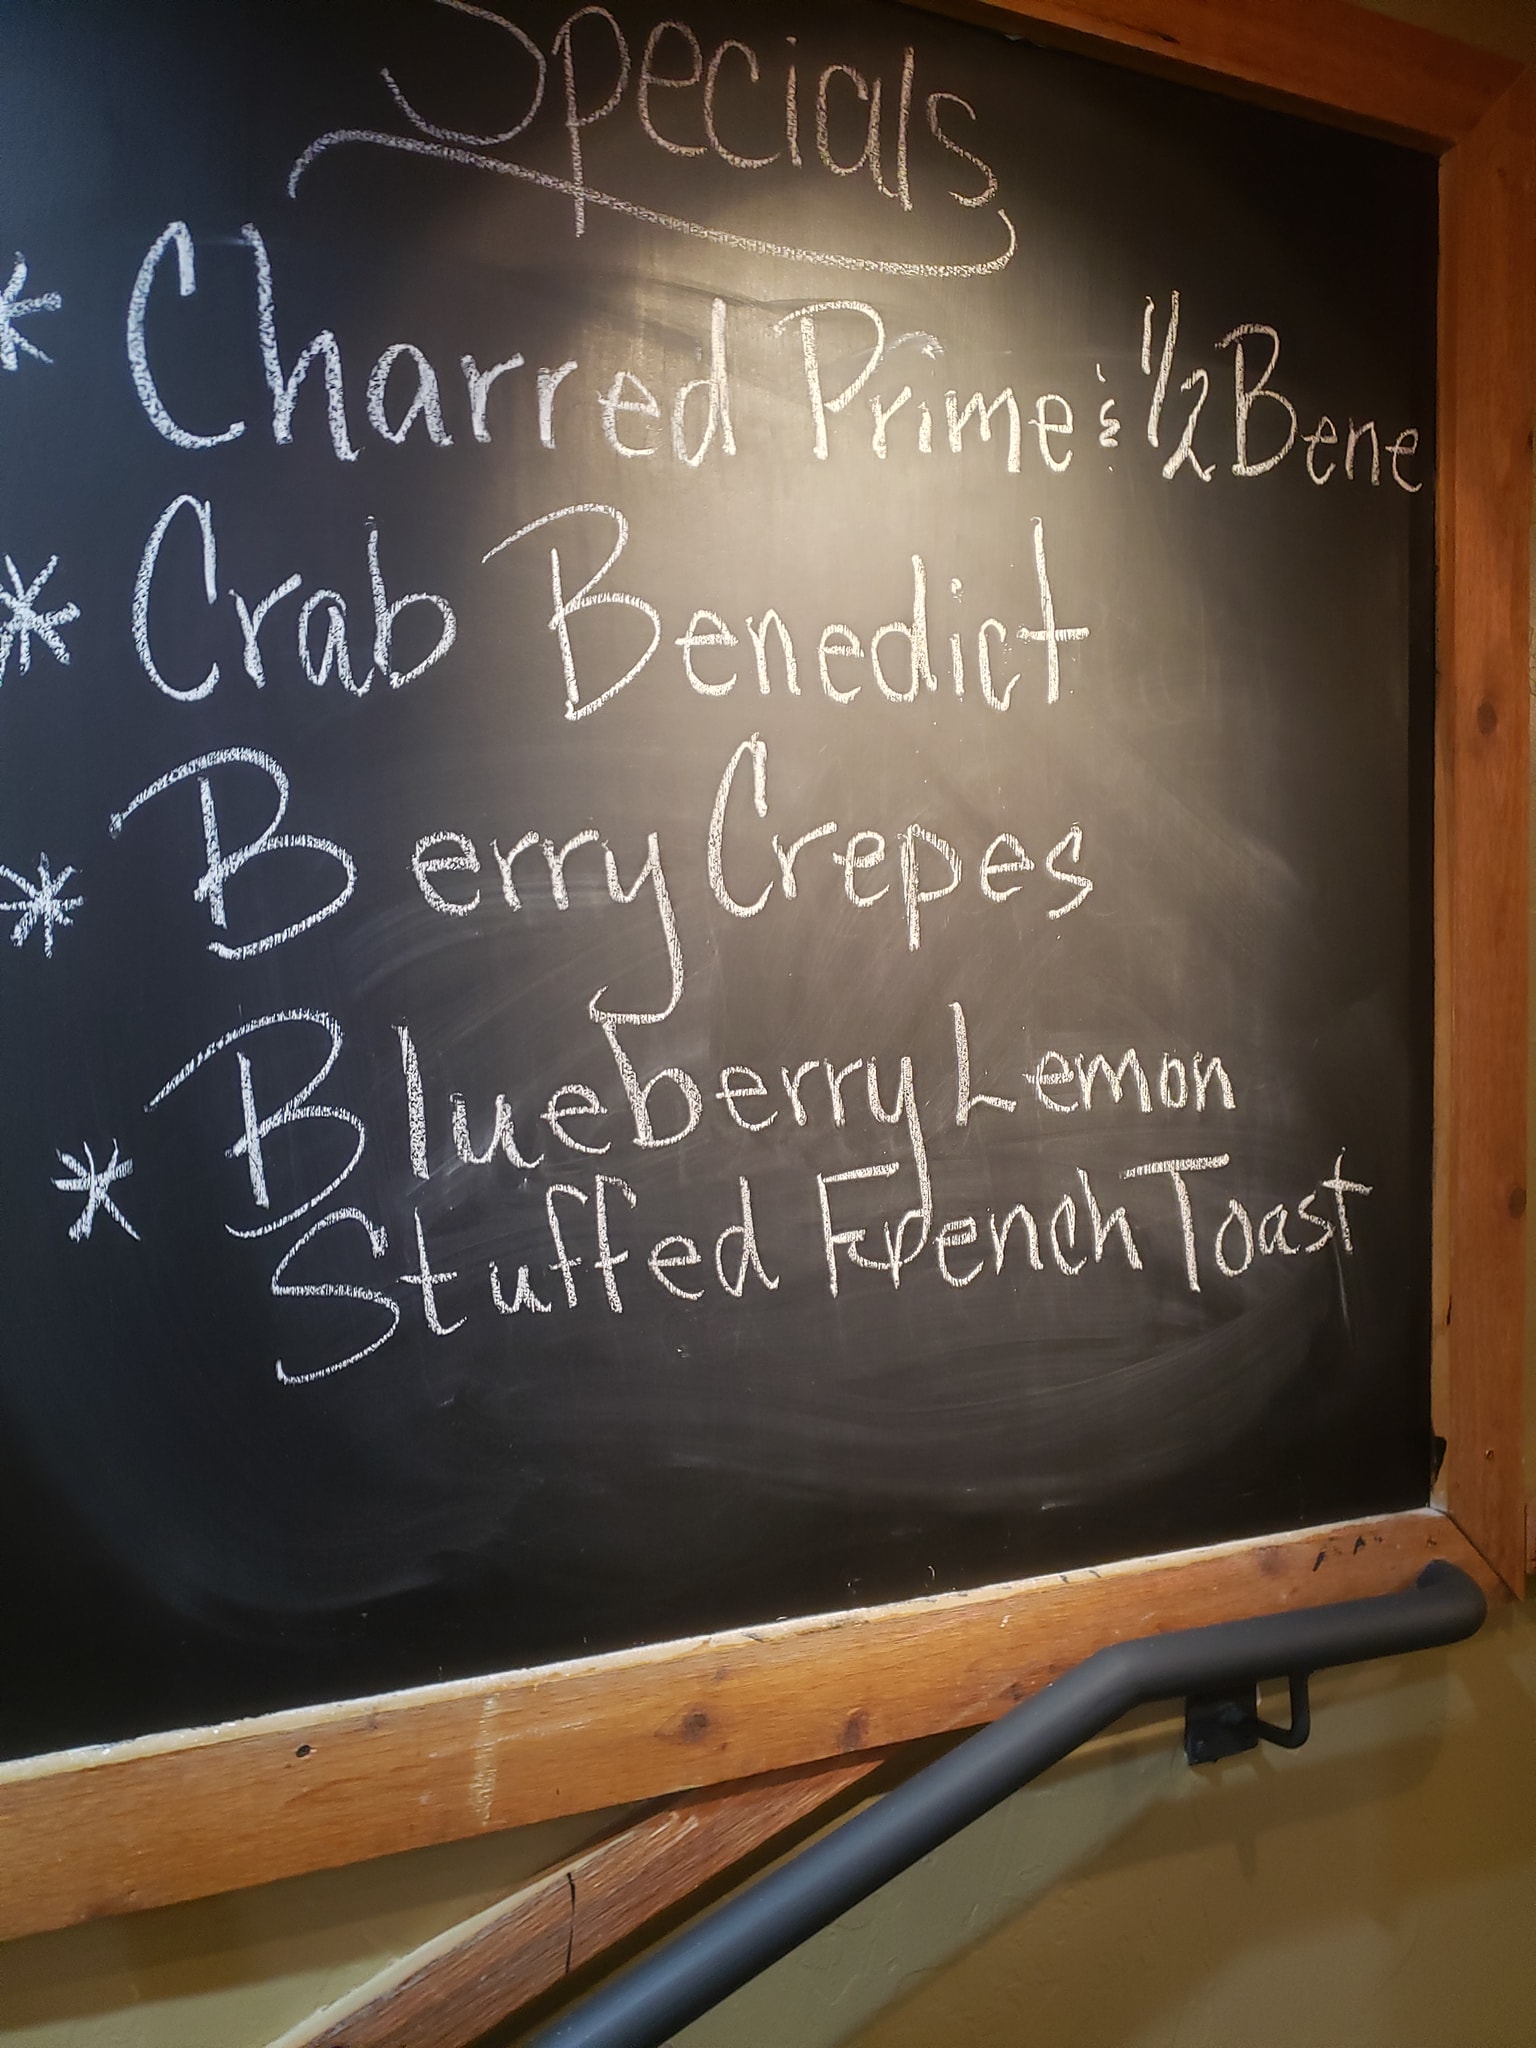 Specials
* Charred Prime & 1/2 Bene
* Crab Benedict
* Berry Crepes
* Blueberry Lemon
Stuffed French Toast